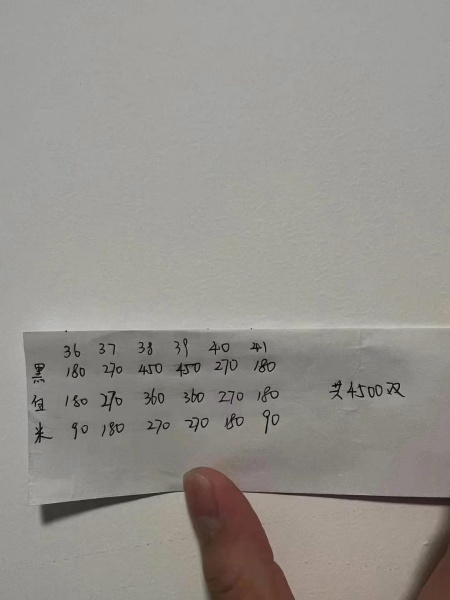 36 37 38 39 40 41
黑 180 270 450 450 270 180
白 180 270 360 360 270 180 共4500双
米 90 180 270 270 180 90